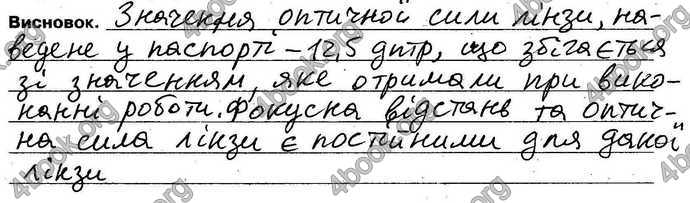 Висновок. Значення оптичної сили лінзи, на-
ведене у паспорті – 12,5 дптр, що збігається
зі значенням, яке отримали при вико-
нанні роботи. Фокусна відстань та оптич-
на сила лінзи є постійними для даної
лінзи